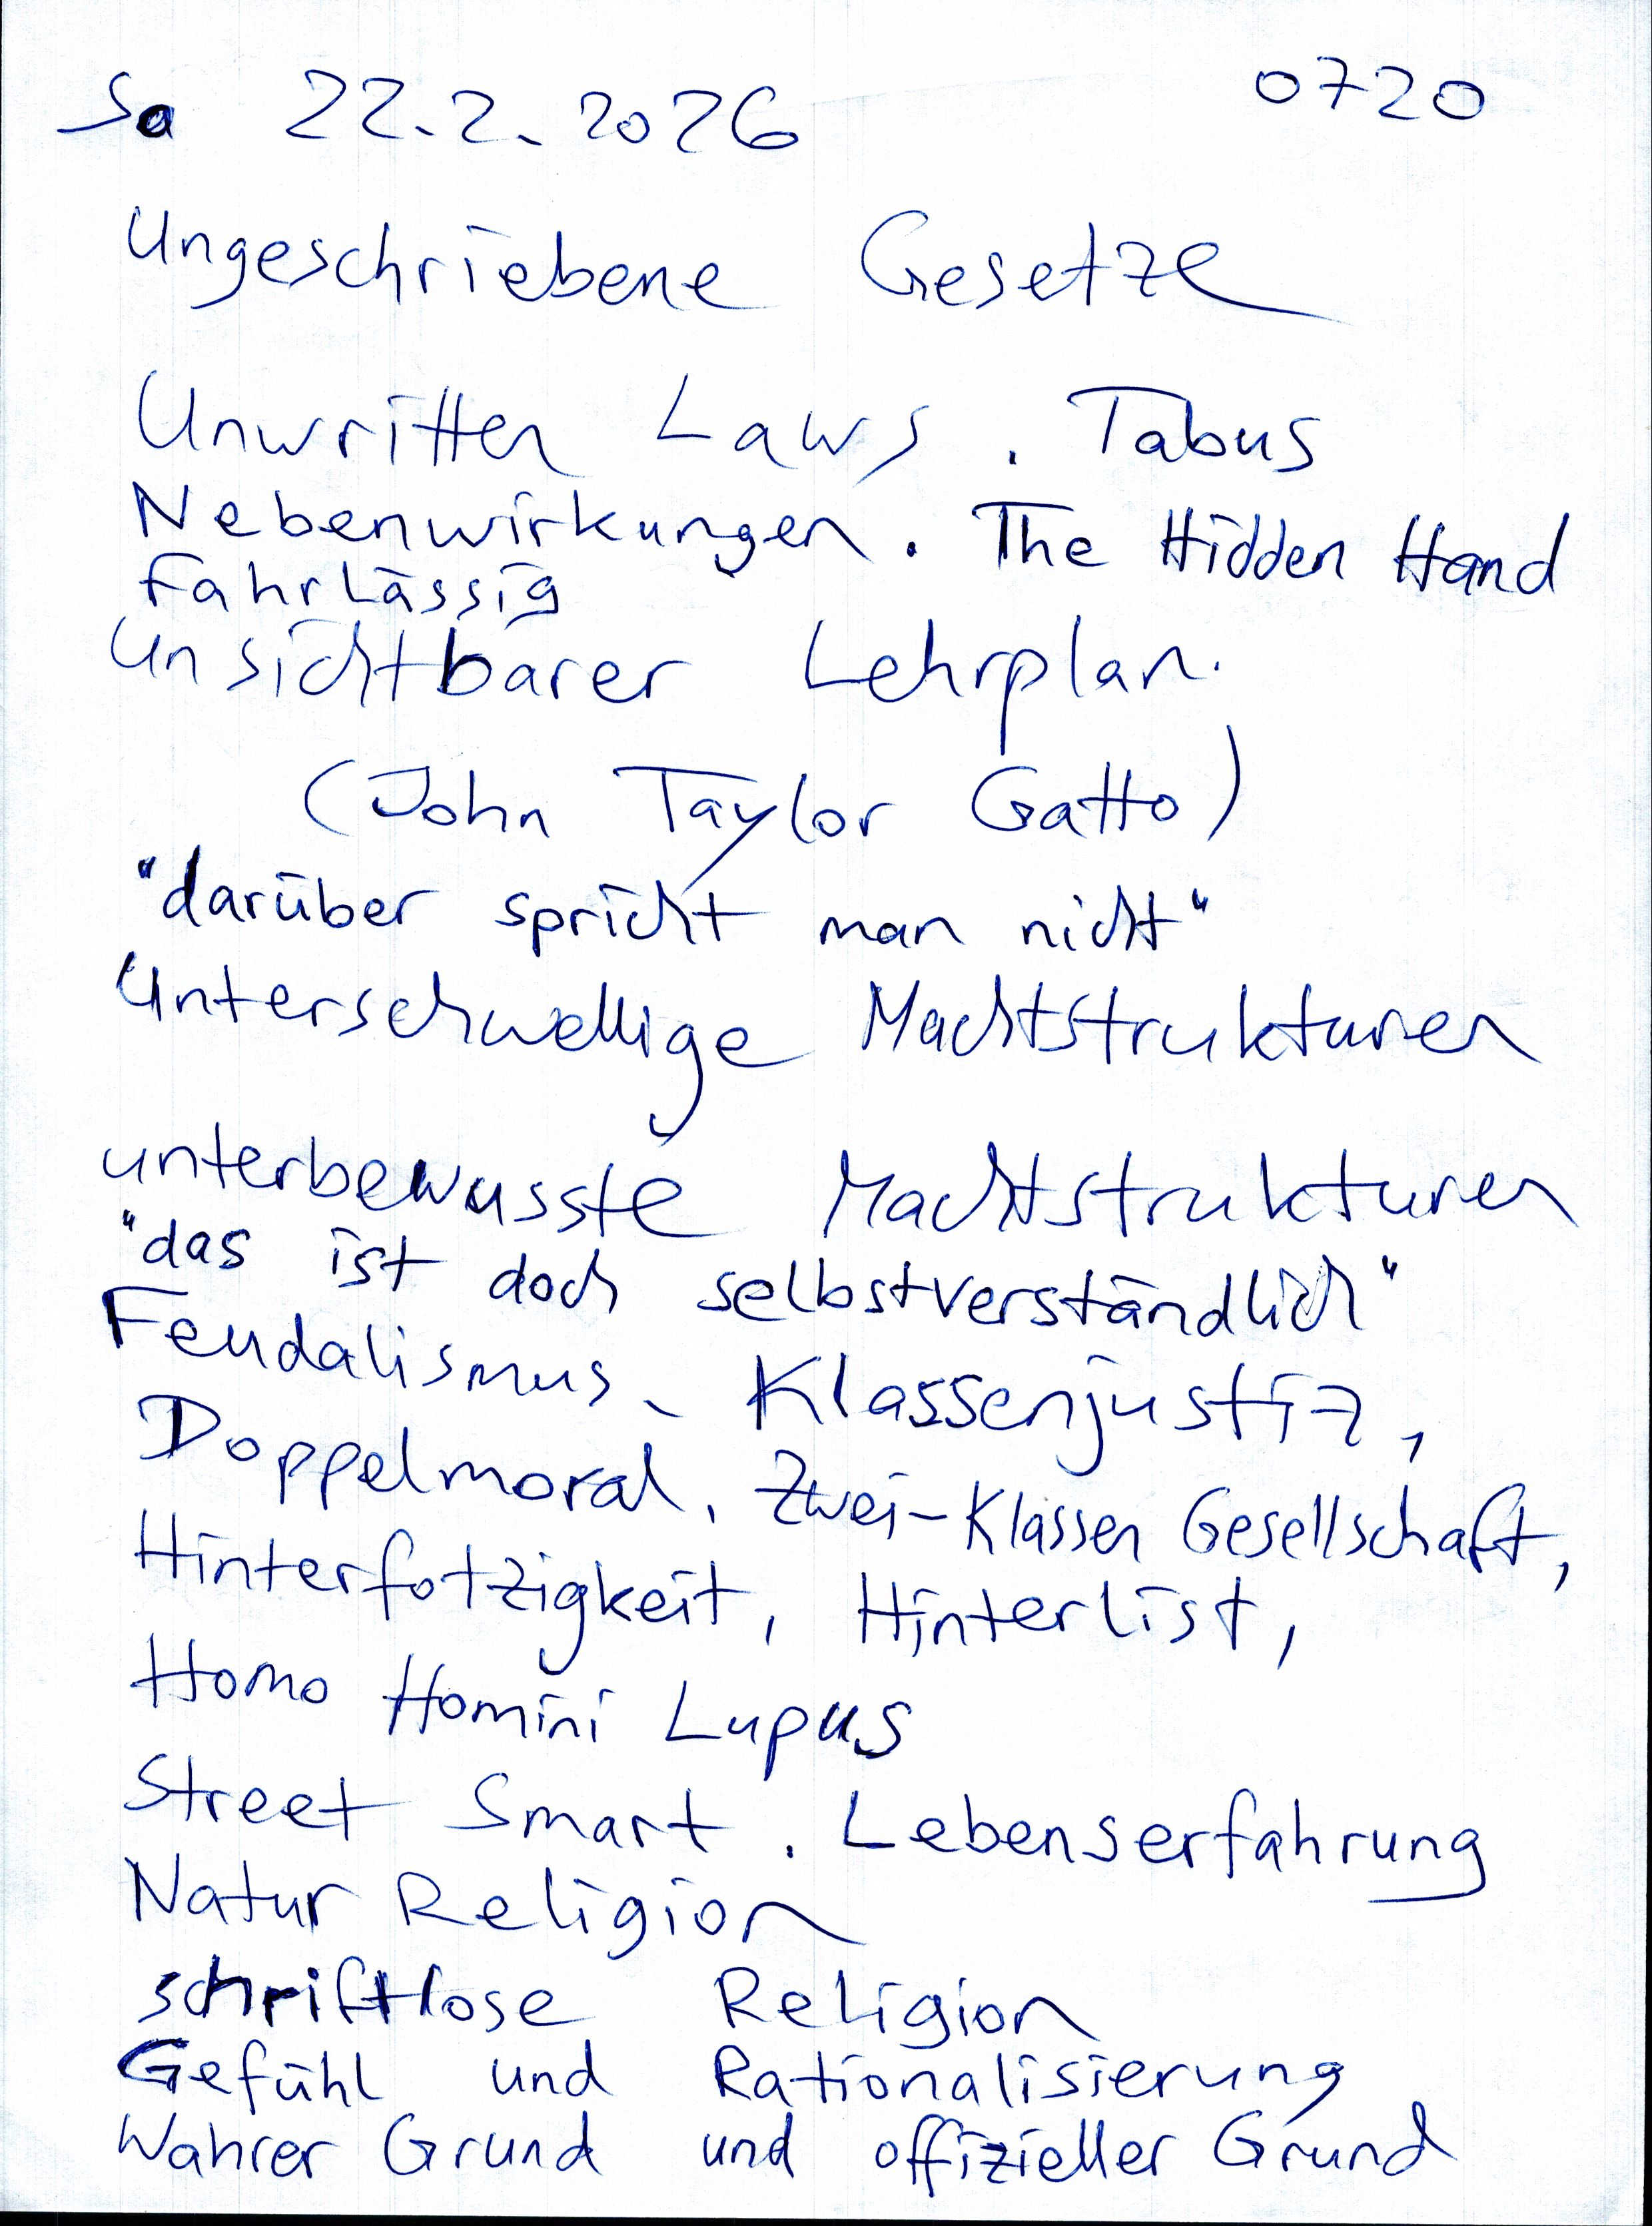 Sa 22.2.2026 0720
Ungeschriebene Gesetze
Unwritten Laws. Tabus
Nebenwirkungen. The Hidden Hand
Fahrlässig
Unsichtbarer Lehrplan.
(John Taylor Gatto)
"darüber spricht man nicht"
Unterschwellige Machtstrukturen
unterbewusste Machtstrukturen
"das ist doch selbstverständlich"
Feudalismus, Klassenjustiz,
Doppelmoral, Zwei-Klassen Gesellschaft,
Hinterfotzigkeit, Hinterlist,
Homo Homini Lupus
Street Smart. Lebenserfahrung
Natur Religion
schriftlose Religion
Gefühl und Rationalisierung
Wahrer Grund und offizieller Grund